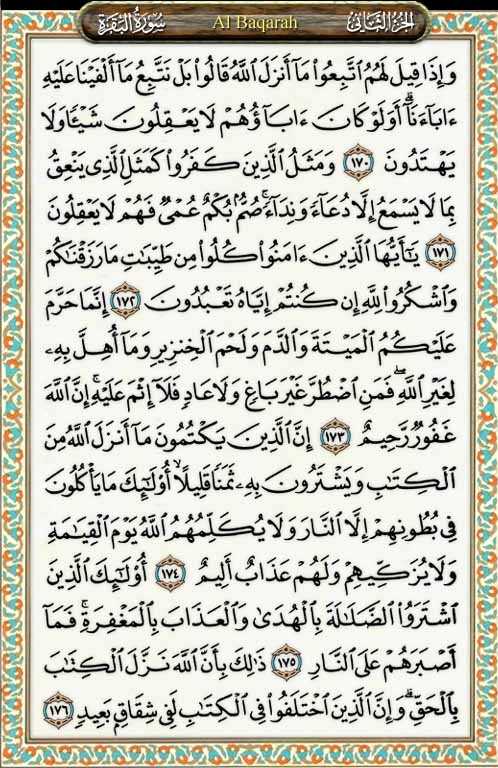 سُورَةُ البَقَرَةِ Al Baqarah الجُزءُ الثَّانِي
وَإِذَا قِيلَ لَهُمُ ٱتَّبِعُوا۟ مَآ أَنزَلَ ٱللَّهُ قَالُوا۟ بَلْ نَتَّبِعُ مَآ أَلْفَيْنَا عَلَيْهِ
ءَابَآءَنَآ ۗ أَوَلَوْ كَانَ ءَابَآؤُهُمْ لَا يَعْقِلُونَ شَيْـًٔا وَلَا
يَهْتَدُونَ ١٧٠ وَمَثَلُ ٱلَّذِينَ كَفَرُوا۟ كَمَثَلِ ٱلَّذِى يَنْعِقُ
بِمَا لَا يَسْمَعُ إِلَّا دُعَآءً وَنِدَآءً ۚ صُمٌّۢ بُكْمٌ عُمْىٌ فَهُمْ لَا يَعْقِلُونَ
١٧١ يَـٰٓأَيُّهَا ٱلَّذِينَ ءَامَنُوا۟ كُلُوا۟ مِن طَيِّبَـٰتِ مَا رَزَقْنَـٰكُمْ
وَٱشْكُرُوا۟ لِلَّهِ إِن كُنتُمْ إِيَّاهُ تَعْبُدُونَ ١٧٢ إِنَّمَا حَرَّمَ
عَلَيْكُمُ ٱلْمَيْتَةَ وَٱلدَّمَ وَلَحْمَ ٱلْخِنزِيرِ وَمَآ أُهِلَّ بِهِۦ
لِغَيْرِ ٱللَّهِ ۖ فَمَنِ ٱضْطُرَّ غَيْرَ بَاغٍ وَلَا عَادٍ فَلَآ إِثْمَ عَلَيْهِ ۚ إِنَّ ٱللَّهَ
غَفُورٌ رَّحِيمٌ ١٧٣ إِنَّ ٱلَّذِينَ يَكْتُمُونَ مَآ أَنزَلَ ٱللَّهُ مِنَ
ٱلْكِتَـٰبِ وَيَشْتَرُونَ بِهِۦ ثَمَنًا قَلِيلًا ۙ أُو۟لَـٰٓئِكَ مَا يَأْكُلُونَ
فِى بُطُونِهِمْ إِلَّا ٱلنَّارَ وَلَا يُكَلِّمُهُمُ ٱللَّهُ يَوْمَ ٱلْقِيَـٰمَةِ
وَلَا يُزَكِّيهِمْ وَلَهُمْ عَذَابٌ أَلِيمٌ ١٧٤ أُو۟لَـٰٓئِكَ ٱلَّذِينَ
ٱشْتَرَوُا۟ ٱلضَّلَـٰلَةَ بِٱلْهُدَىٰ وَٱلْعَذَابَ بِٱلْمَغْفِرَةِ ۚ فَمَآ
أَصْبَرَهُمْ عَلَى ٱلنَّارِ ١٧٥ ذَٰلِكَ بِأَنَّ ٱللَّهَ نَزَّلَ ٱلْكِتَـٰبَ
بِٱلْحَقِّ ۗ وَإِنَّ ٱلَّذِينَ ٱخْتَلَفُوا۟ فِى ٱلْكِتَـٰبِ لَفِى شِقَاقٍۭ بَعِيدٍ ١٧٦